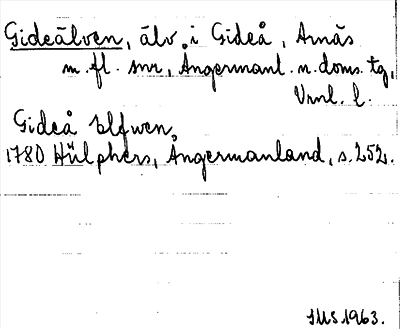 Gideälven, älv i Gideå, Arnäs
m.fl. snr, Ångermanl. n. doms. tg,
Vnrl. l.
Gideå Elfwen,
1780 Hülphers, Ångermanland, s. 252.
JUS 1963.